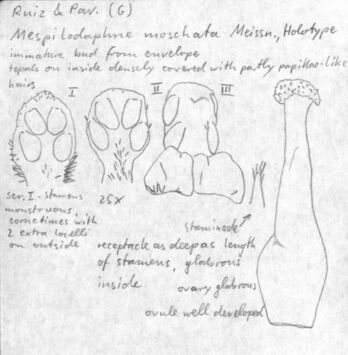 Ruiz & Pav. (G)
Mespilodaphne moschata Meissn., Holotype
immature bud from envelope
tepals on inside densely covered with partly papillae-like
hairs
I II III
ser. I - stamens
monstruous,
sometimes with
2 extra locelli
on outside
25x
staminode
receptacle as deep as length
of stamens, glabrous
inside
ovary glabrous
ovule well developed